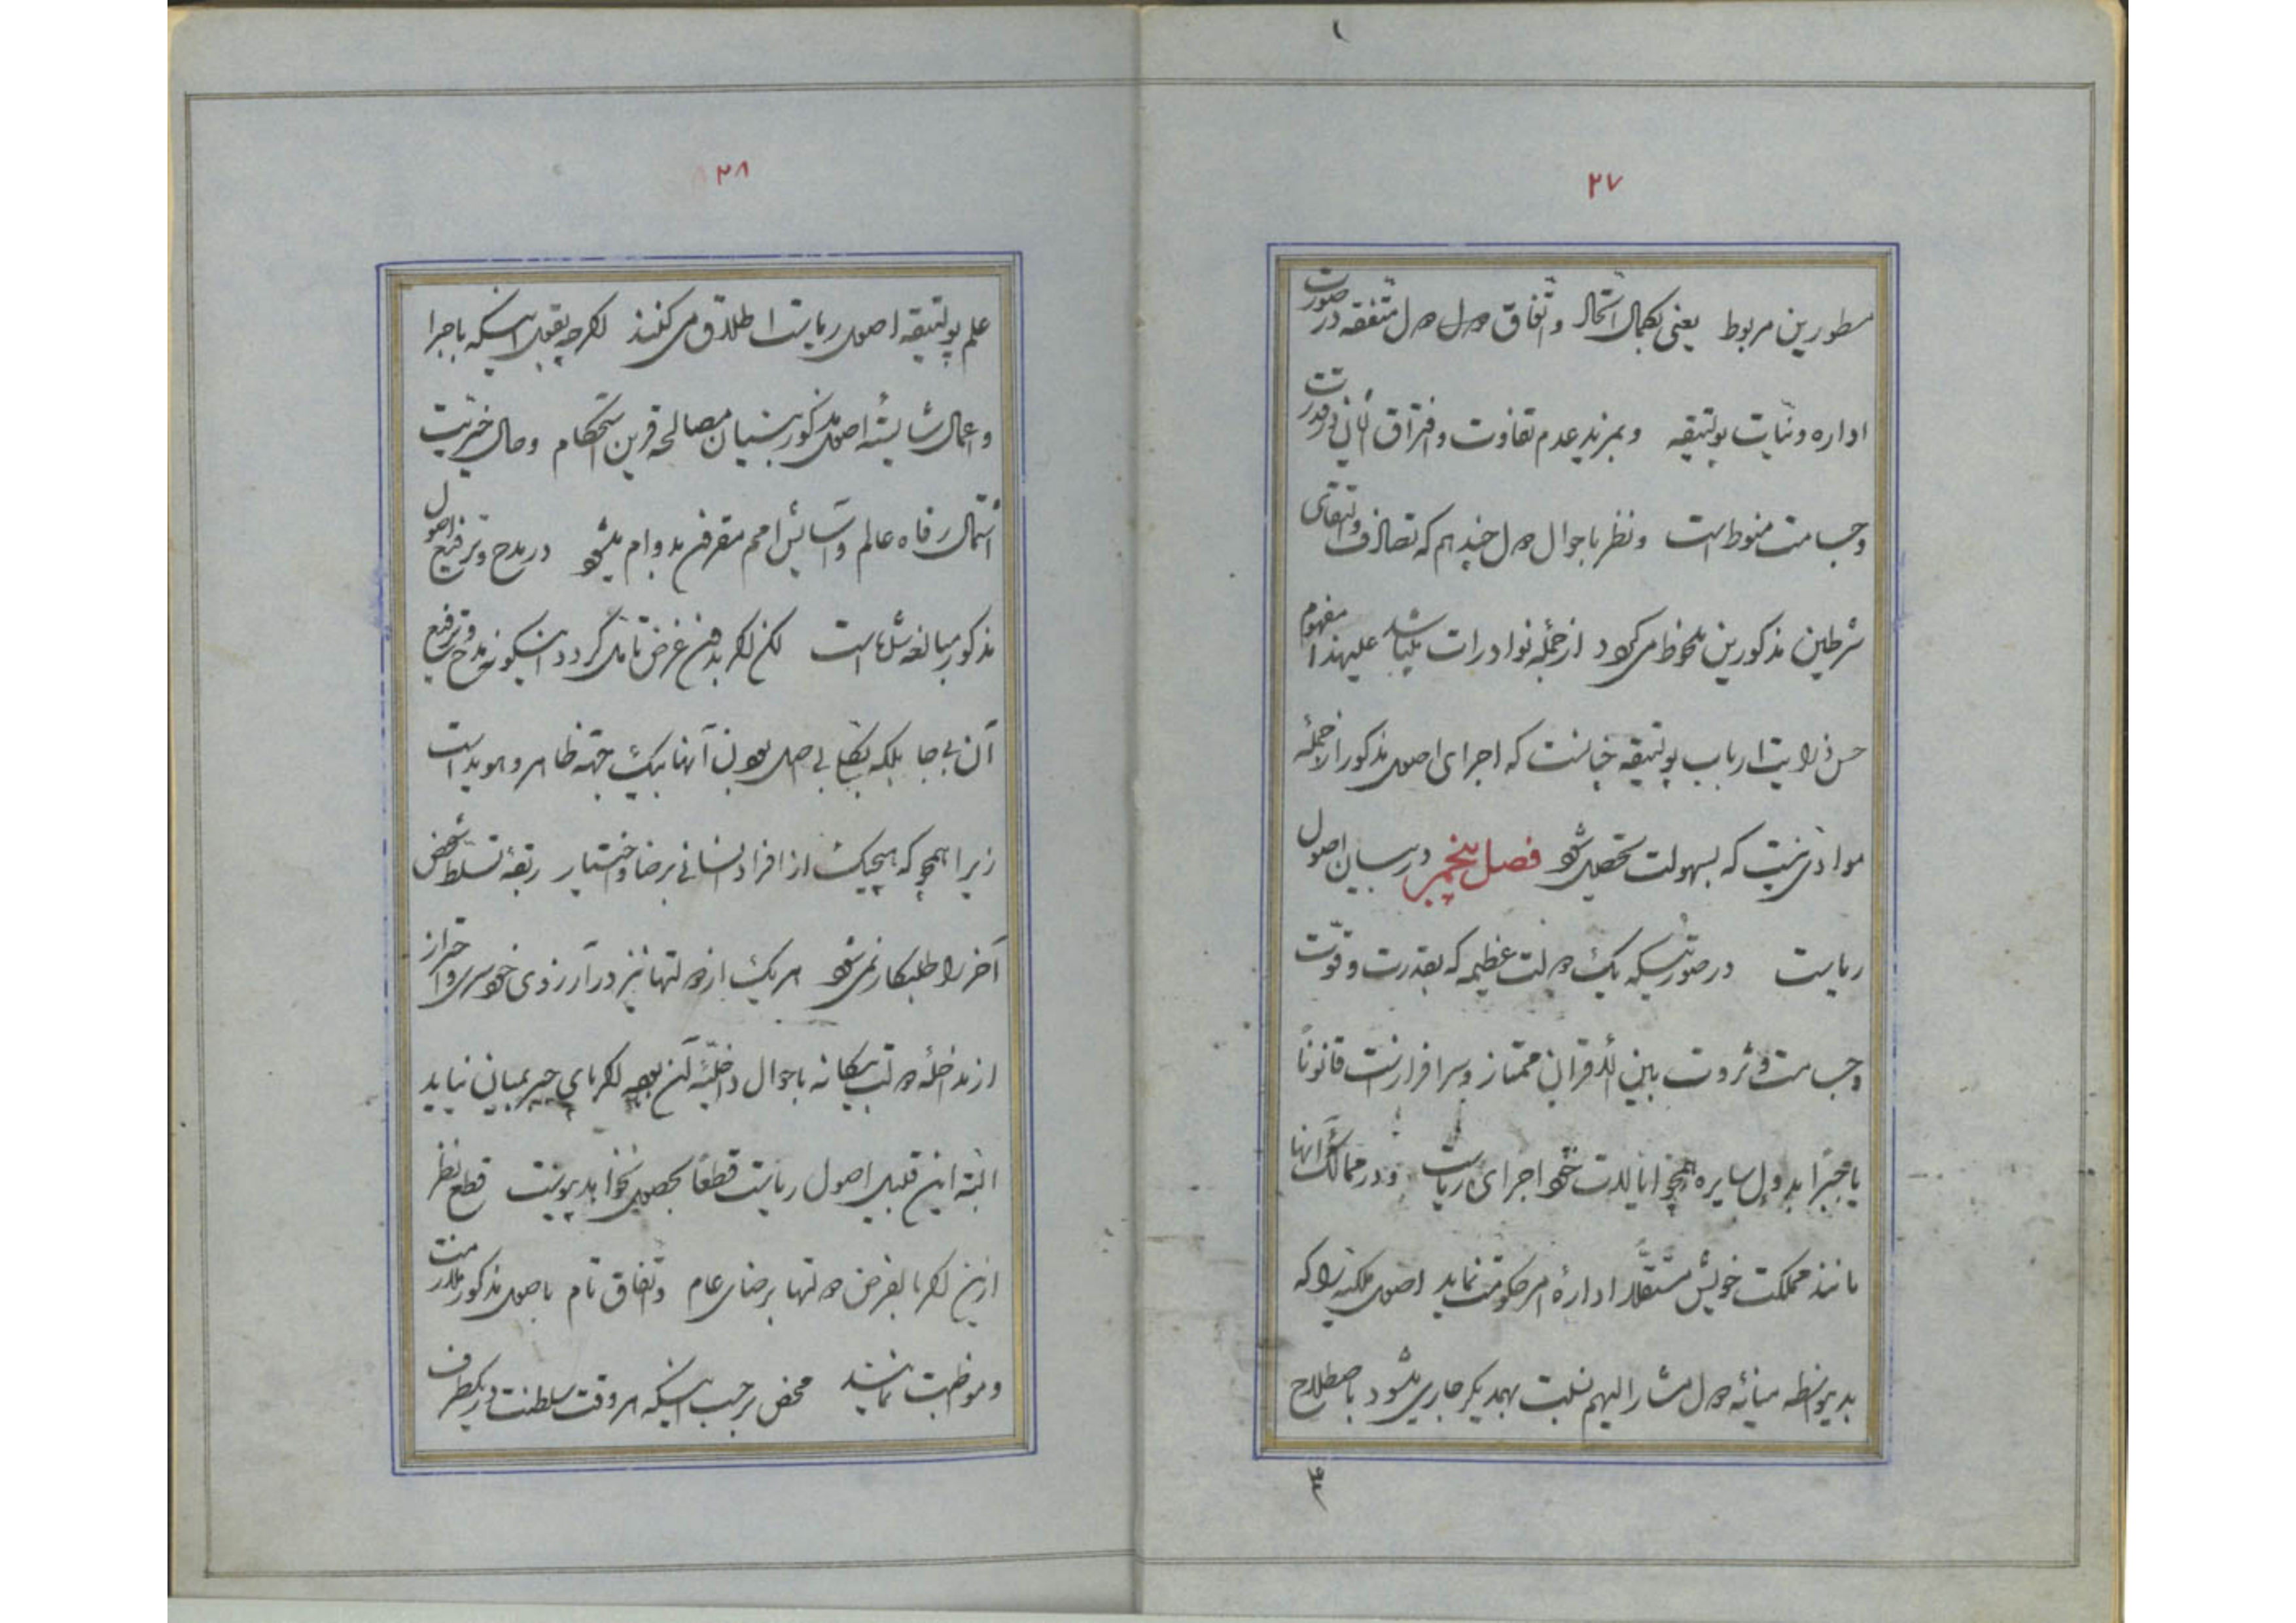 ۲۷
مسطورین مربوط یعنی بکمال اتحاد و اتفاق دول متفقه در صورت
اداره و نیات پولتیقه و بمزید عدم تفاوت و افتراق در قدرت
و جسامت منوط است و نظر باحوال دول چند هم که تصادف و التقای
شرطین مذکورین ملحوظ میگردد از جمله نوادرات میباشد علیهذا مفهوم
ارباب پولتیقه چنانست که اجرای اصول مذکور از جمله
موادی نیست که بسهولت تحصیل شود فصل پنجم در بیان اصول
ریاست در صورتیکه یک دولت عظیمه که بقدرت و قوت
و جسامت و ثروت بین الاقران ممتاز و سرافراز است قانوناً
یا جبراً بدول سایره همچو ایالات خود اجرای ریاست و در ممالک آنها
مانند مملکت خویش مستقلا اداره امر حکومت نماید اصول ملکیه را که
بدین واسطه میانه دول مشار الیهم نسبت بهمدیگر جاری میشود باصطلاح
۲۸
علم پولتیقه اصول ریاست اطلاق می کنند اگرچه بقول اینکه باجرا
و اعمال شایسته اصول مذکور بنیان مصالحه قرین استحکام و حال خیریت
اشتمال رفاه عالم و آسایش امم مقرون بدوام میشود در مدح و ترفیع اصول
مذکور مبالغه شده است لکن اگر بدون غرض تامل گردد اینگونه مدح و ترفیع
آن بی جا بلکه بکلی بی اصل بودن آنها بیک جهة ظاهر و هویداست
زیرا همچو که هیچیک از افراد انسانی برضا و اختیار ربقه تسلط شخص
آخر را طلبکار نمی شود هر یک از دولتها نیز در آرزوی خودسری و احتراز
از مداخله دولت بیگانه باحوال داخلیه آن بوده اگر پای جبر بمیان نیاید
البته این قبیل اصول ریاست قطعاً بحصول نخواهد پیوست قطع نظر
ازین اگر بالفرض دولتها برضای عام و اتفاق تام باصول مذکور ملازمت
و مواظبت نمایند محض بر حسب اینکه هر وقت سلطنت در یکطرف